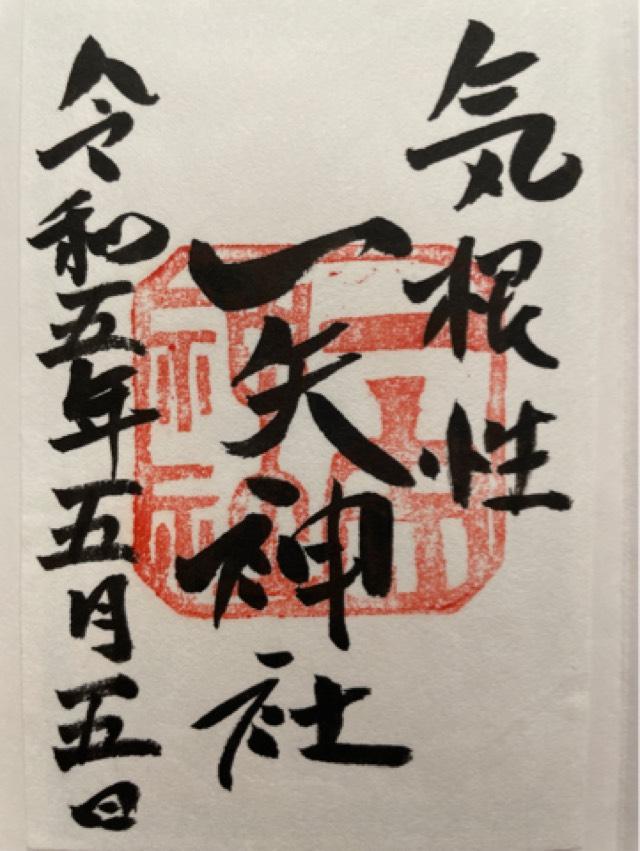 気根性
一矢神社
令和五年五月五日